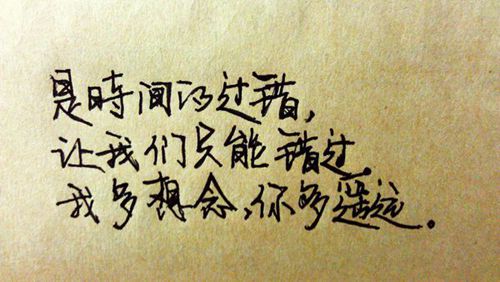 是時间的过错，
让我们只能错过，
我多想念，你多遥远。